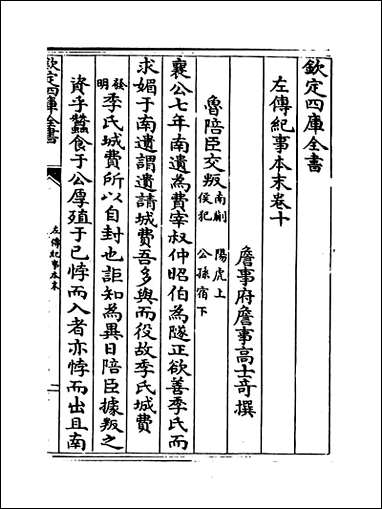 欽定四庫全書
左傳紀事本末卷十
詹事府詹事高士奇撰
魯陪臣交叛 南蒯 陽虎上
侯犯 公孫宿下
襄公七年南遺為費宰叔仲昭伯為隧正欲善季氏而
求媚于南遺謂遺請城費吾多與而役故季氏城費
發明季氏城費所以自封也詎知為異日陪臣據叛之
資乎蠶食于公厚殖于己悖而入者亦悖而出且南
欽定四庫全書
左傳紀事本末